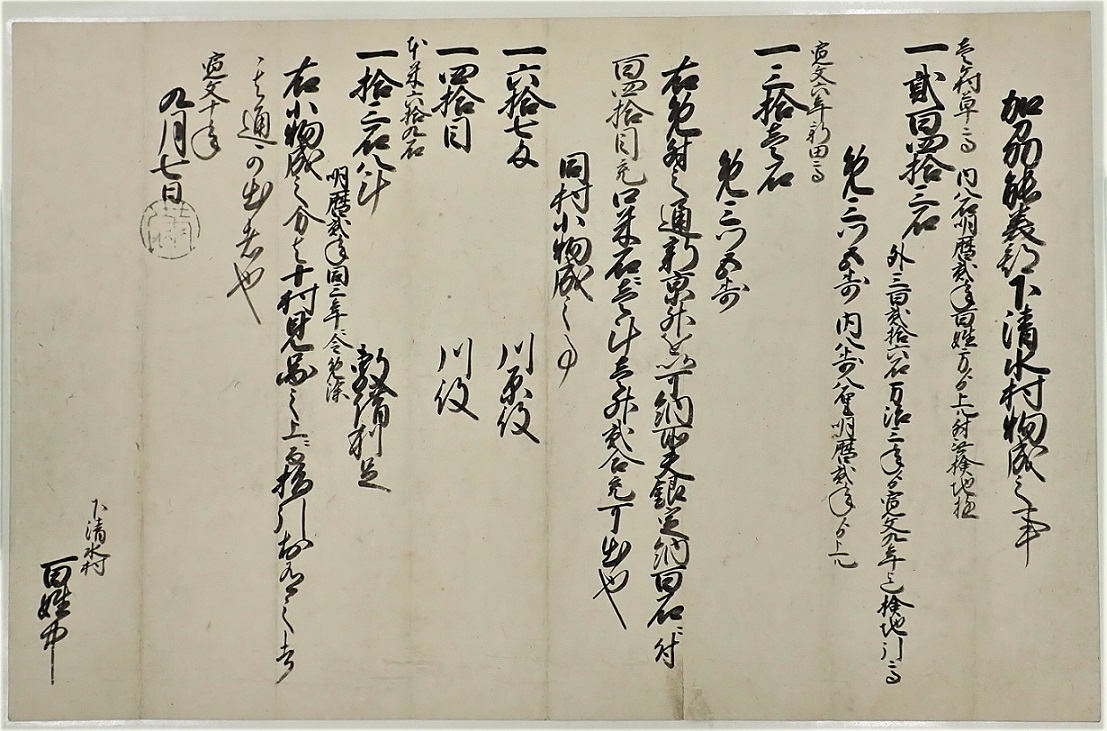 加刕能美郡下清水村物成之事
壱村草高 内八石明暦弐年百姓方ゟ上ル付済検地極
一弐百四拾三石 外三百弐拾六石万治三年ゟ寛文九年迄検地引高
免三ツ五歩 内八歩八厘明暦弐年ゟ上ル
寛文六年新田高
一三拾壱石
免三ツ五歩
右免付之通新京升を以可納所夫銀定納百石ニ付
百四拾目充口米石ニ壱斗壱升弐合充可出也
同村小物成之事
一六拾七匁 川原役
一四拾目 川役
本米六拾九石
一拾三石八斗 敷借利足
明暦弐年同三年ニ令免除
右小物成之分者十村見図之上ニ而指引於有之者
其通ニ可出者也
寛文十年
九月七日
下清水村
百姓中